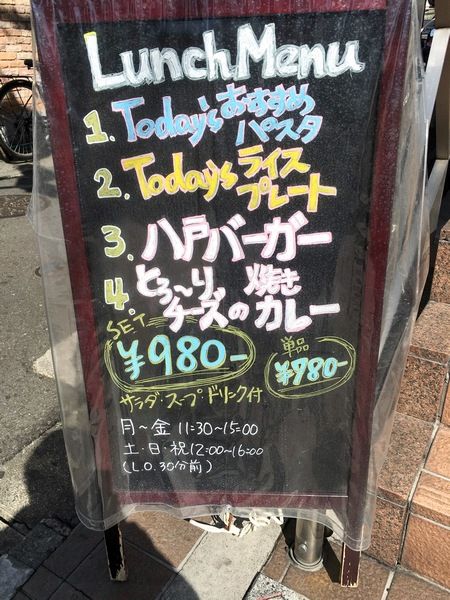 Lunch Menu
1. Today's おすすめ
パスタ
2. Today's ライス
プレート
3. 八戸バーガー
4. とろ〜りチーズの焼きカレー
SET
¥980-
単品
¥780-
サラダ・スープドリンク付
月〜金 11:30〜15:00
土・日・祝 12:00〜16:00
(L.O.30分前)